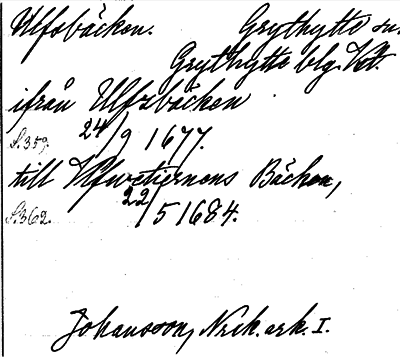 Ulfsbäcken. Grythytte sn.
Grythytte blg. Vstl.
ifrån Ulfzbäcken
S.359. 24/9 1677.
till Ulfwetiernens Bäcken,
S.362. 22/5 1684.
Johansson, Nrik. ark. I.